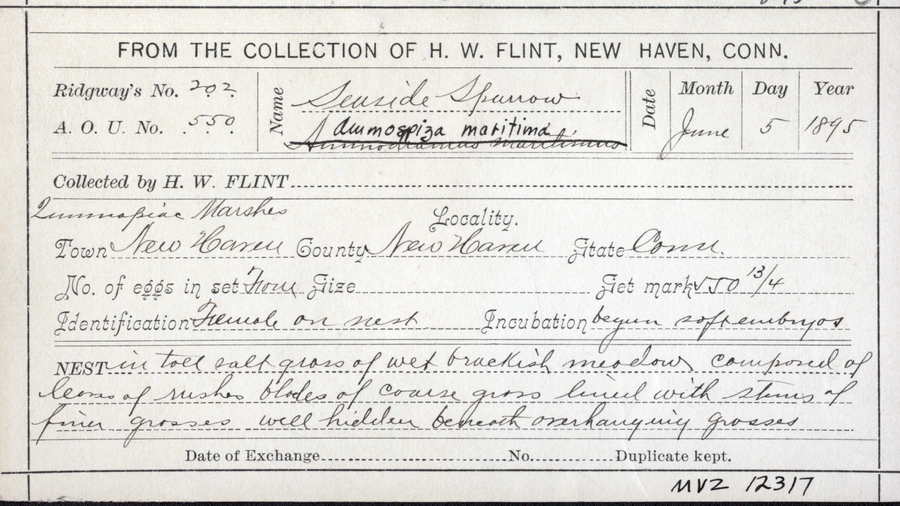 FROM THE COLLECTION OF H. W. FLINT, NEW HAVEN, CONN.
Ridgway's No. 202
A. O. U. No. 550
Name
Seaside Sparrow
Ammospiza maritima
Ammodramus maritimus
Date
Month
Day
Year
June
5
1895
Collected by H. W. FLINT
Quinnapiac Marshes
Locality.
Town New Haven County New Haven State Conn.
No. of eggs in set Four Size Set mark 550 13/4
Identification Female on nest Incubation begun soft embryos
NEST in tall salt grass of wet brackish meadow, composed of
leaves of rushes blades of coarse grass lined with stems of
finer grasses well hidden beneath overhanging grasses
Date of Exchange No. Duplicate kept.
MVZ 12317